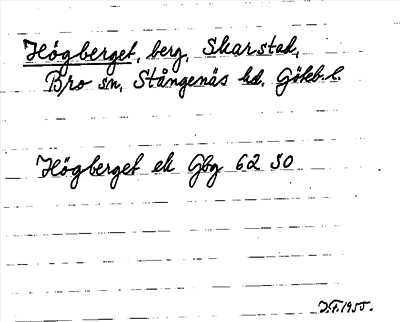 Högberget, berg, Skarstad,
Bro sn, Stångenäs hd, Gökb. l.
Högberget ek Gbg 62 SO
J.F. 1955.